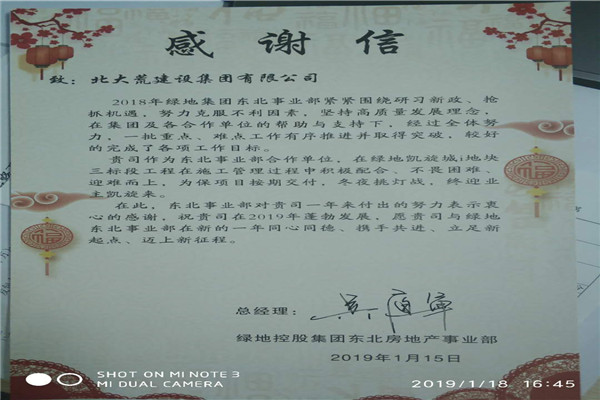 感谢信
致：北大荒建设集团有限公司
2018年绿地集团东北事业部紧紧围绕研习新政、抢
抓机遇，努力克服不利因素，坚持高质量发展理念，
在集团及各合作单位的帮助与支持下，经过全体努
力，一批重点、难点工作有序推进并取得突破，较好
的完成了各项工作目标。
贵司作为东北事业部合作单位，在绿地凯旋城i地块
三标段工程在施工管理过程中积极配合、不畏困难、
迎难而上，为保项目按期交付，冬夜挑灯战，终迎业
主凯旋来。
在此，东北事业部对贵司一年来付出的努力表示衷
心的感谢，祝贵司在2019年蓬勃发展，愿贵司与绿地
东北事业部在新的一年同心同德、携手共进、立足新
起点、迈上新征程。
总经理：
绿地控股集团东北房地产事业部
2019年1月15日
SHOT ON MI NOTE 3
MI DUAL CAMERA
2019/1/18 16:45